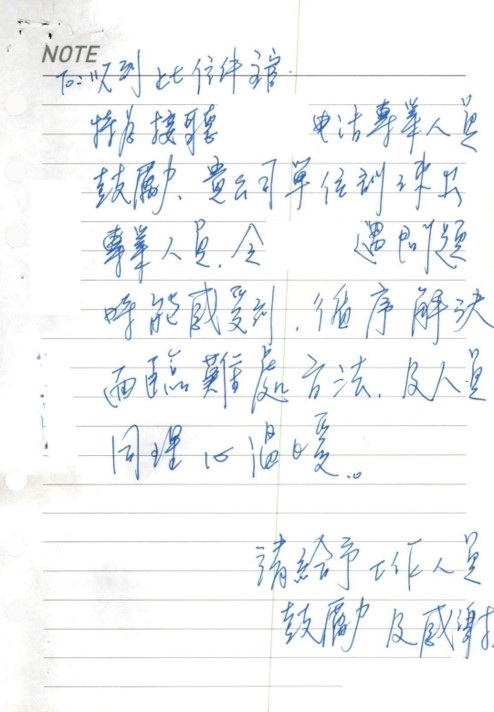 NOTE
To: 收到此信件主管.
特為接聽 電話專業人員
鼓勵、貴公司單位訓練出
專業人員、令 遇問題
時能感受到、循序解決
面臨難處方法、及人員
同理心溫暖。
請給予工作人員
鼓勵及感謝.